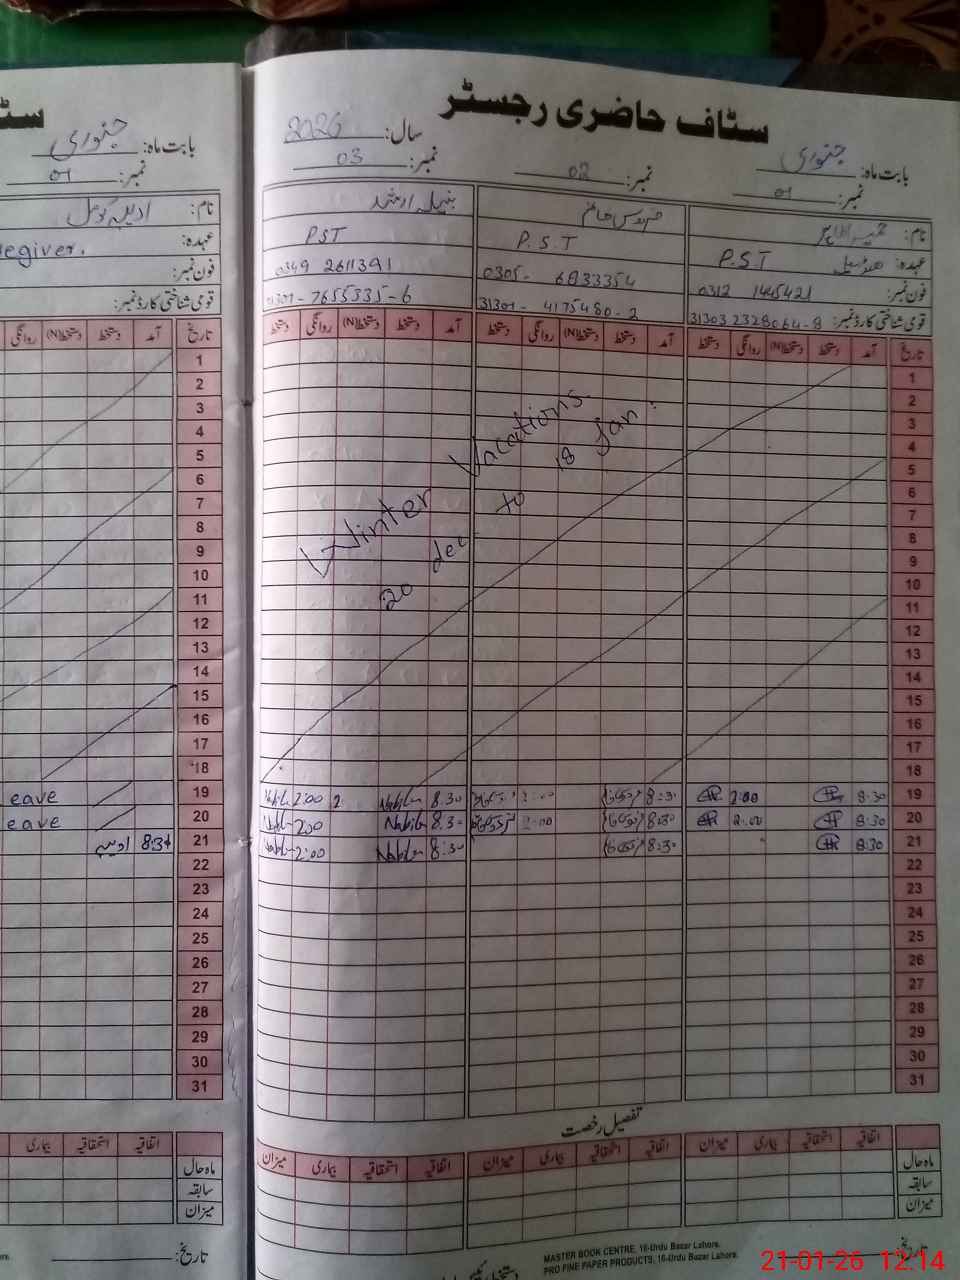 سٹاف حاضری رجسٹر
بابت ماہ: جنوری
سال: 2026
نمبر: 01
نمبر: 02
نمبر: 03
نام:
عہدہ: P.S.T
فون نمبر: 0312 1445421
قومی شناختی کارڈ نمبر: 31303 2328064-8
P.S.T
0305- 6833354
31301- 4175480-2
نبیلہ ارشد
PST
0349 2611391
31301-7655335-6
تاریخ آمد دستخط دستخط(N) روانگی دستخط آمد دستخط دستخط(N) روانگی دستخط آمد دستخط دستخط(N) روانگی دستخط
1
2
3
4
5
6
7
8
9
10
11
12
13
14
15
16
17
18
Winter Vacations.
20 dec to 18 Jan.
19 8:30 2:00 8:30 2:00 8.30 Nabila 2:00 Nabila
20 8:30 2:00 8:30 2:00 8.30 Nabila 2:00 Nabila
21 8:30 8:30 8:30 Nabila 2:00 Nabila
22
23
24
25
26
27
28
29
30
31
تفصیل رخصت
اتفاقیہ استحقاقیہ بیماری میزان اتفاقیہ استحقاقیہ بیماری میزان اتفاقیہ استحقاقیہ بیماری میزان
ماہ حال
سابقہ
میزان
تاریخ:
MASTER BOOK CENTRE, 16-Urdu Bazar Lahore.
PRO FINE PAPER PRODUCTS, 16-Urdu Bazar Lahore.
بابت ماہ: جنوری
نمبر: 01
نام: ادیبہ کومل
عہدہ: egiver.
فون نمبر:
قومی شناختی کارڈ نمبر:
تاریخ آمد دستخط دستخط(N) روانگی
1
2
3
4
5
6
7
8
9
10
11
12
13
14
15
16
17
18
19 eave
20 eave
21 8:31 ادیبہ
22
23
24
25
26
27
28
29
30
31
اتفاقیہ استحقاقیہ بیماری
ماہ حال
سابقہ
میزان
تاریخ:
21-01-26 12:14